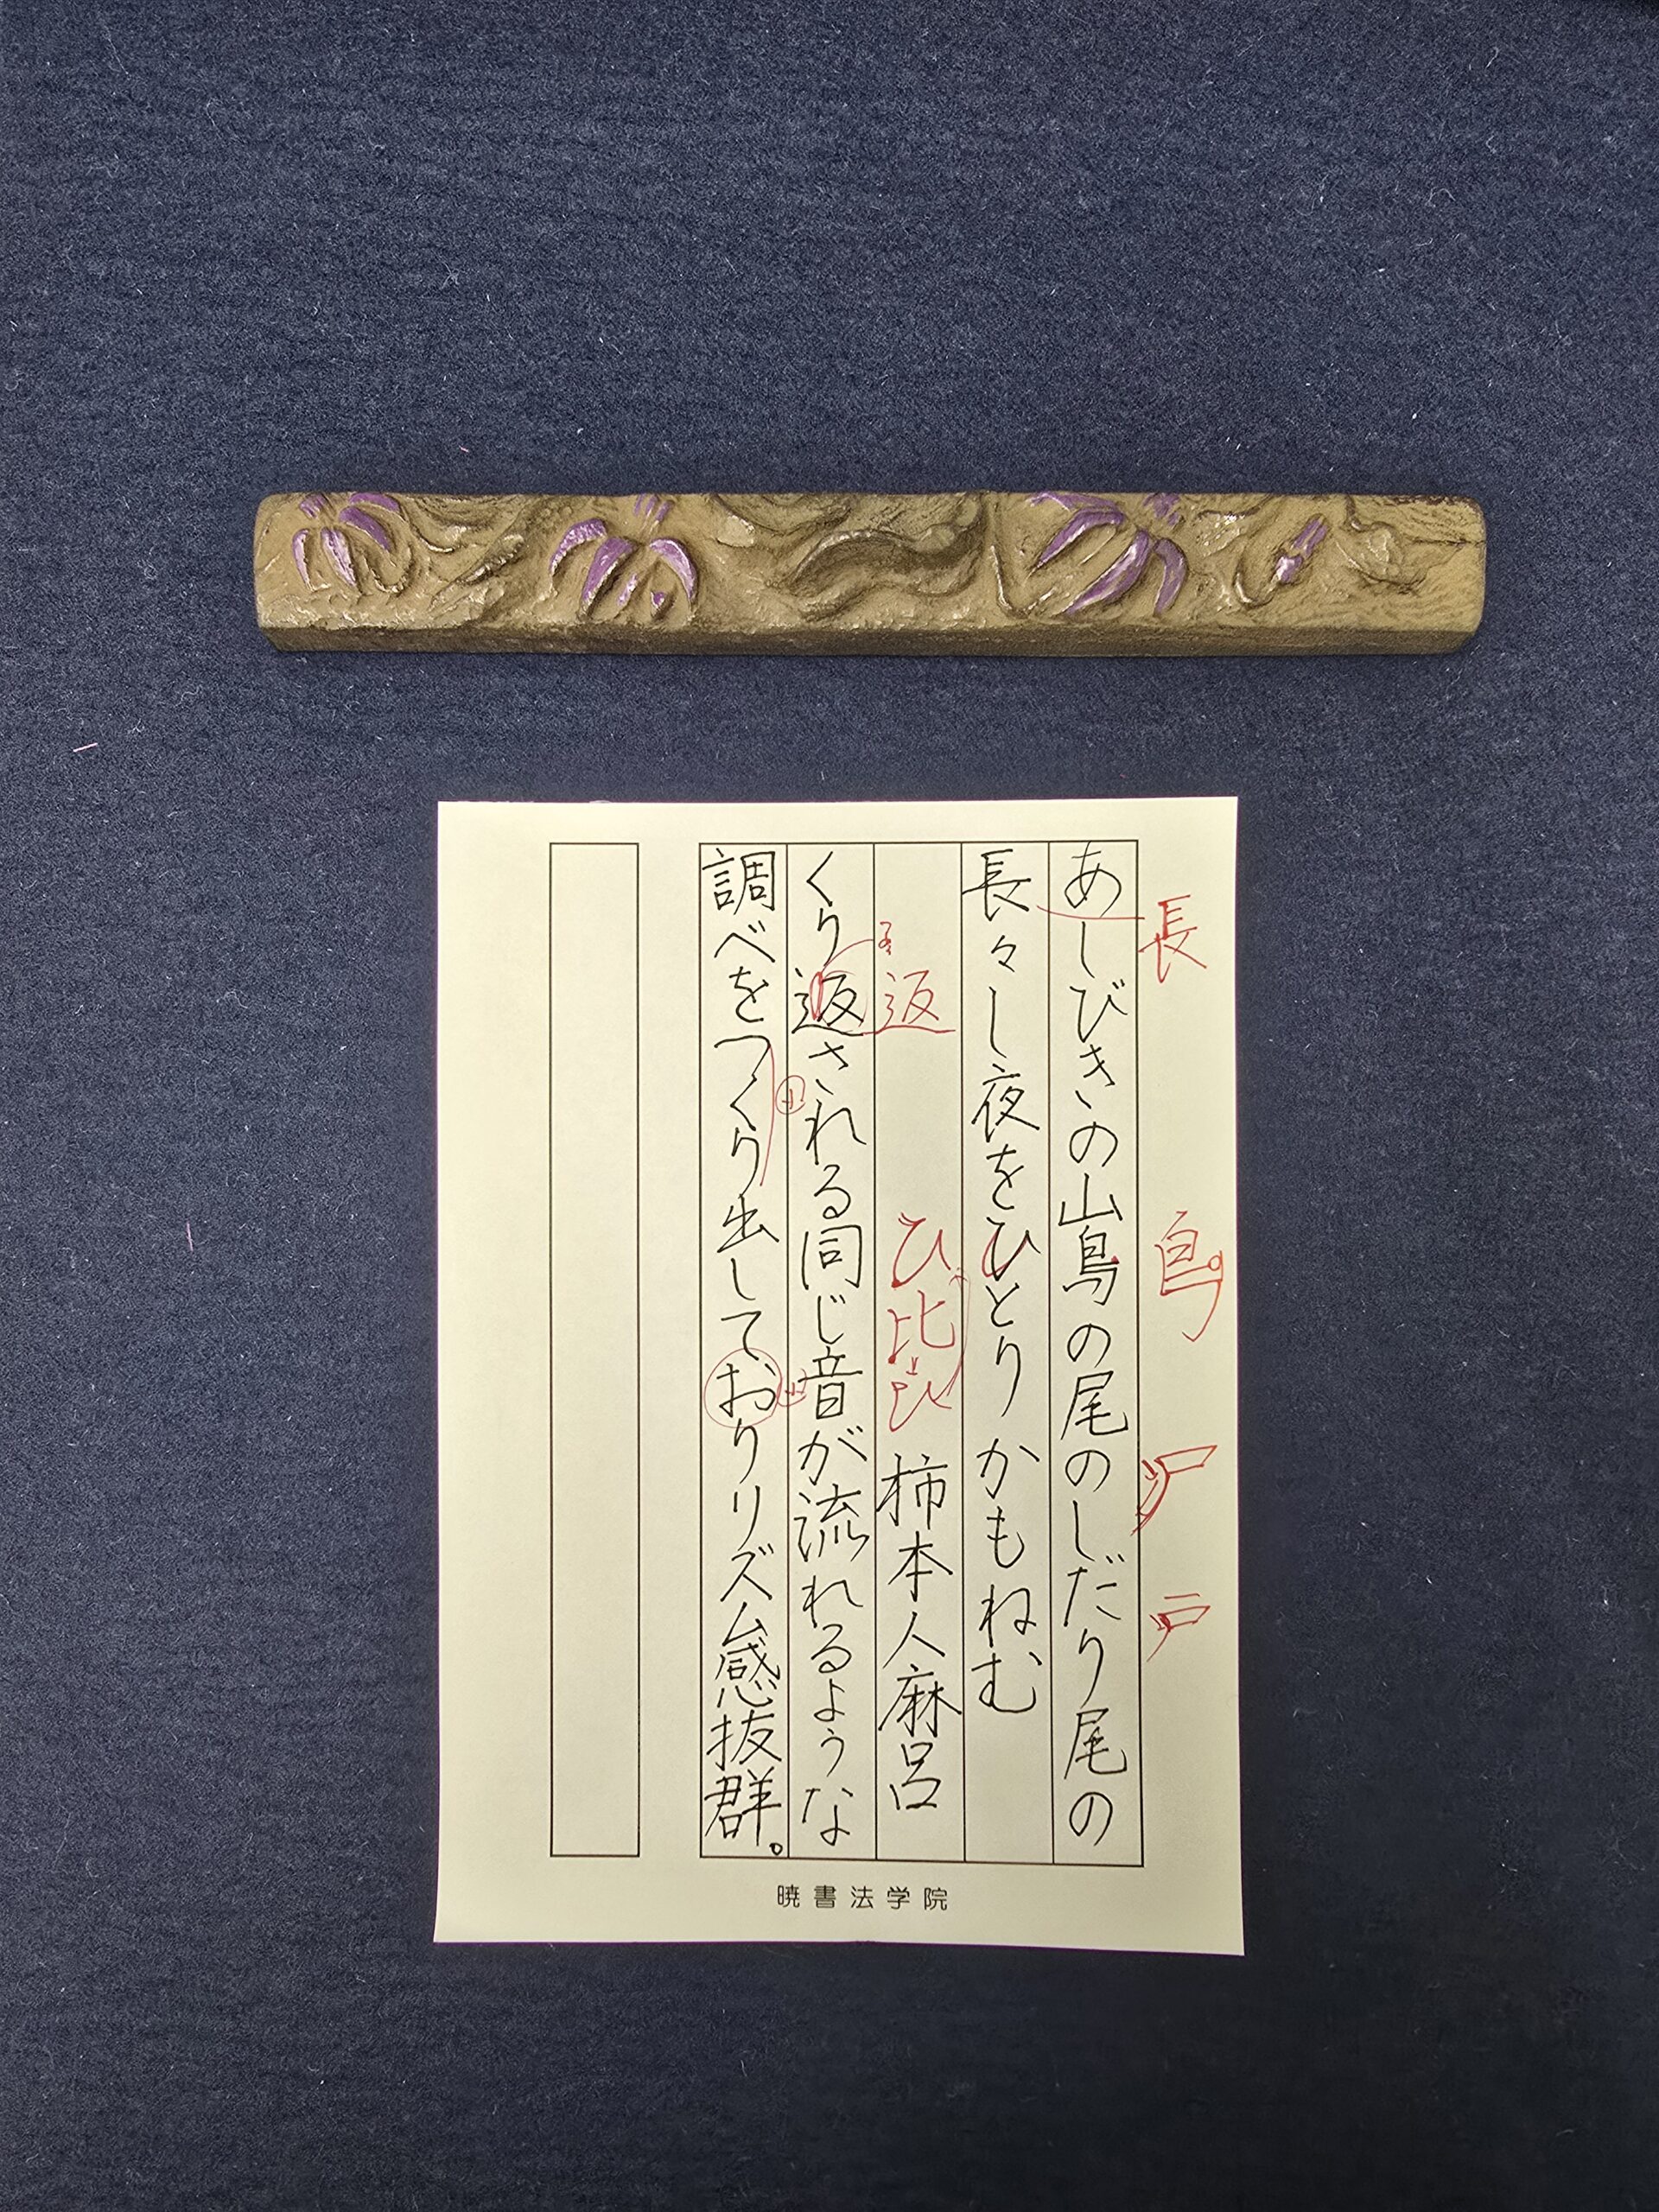 あしびきの山鳥の尾のしだり尾の
長々し夜をひとりかもねむ
柿本人麻呂
くり返される同じ音が流れるような
調べをつくり出しておりリズム感抜群。
長
鳥
尸
戸
返
ひ
比
ひ
暁書法学院